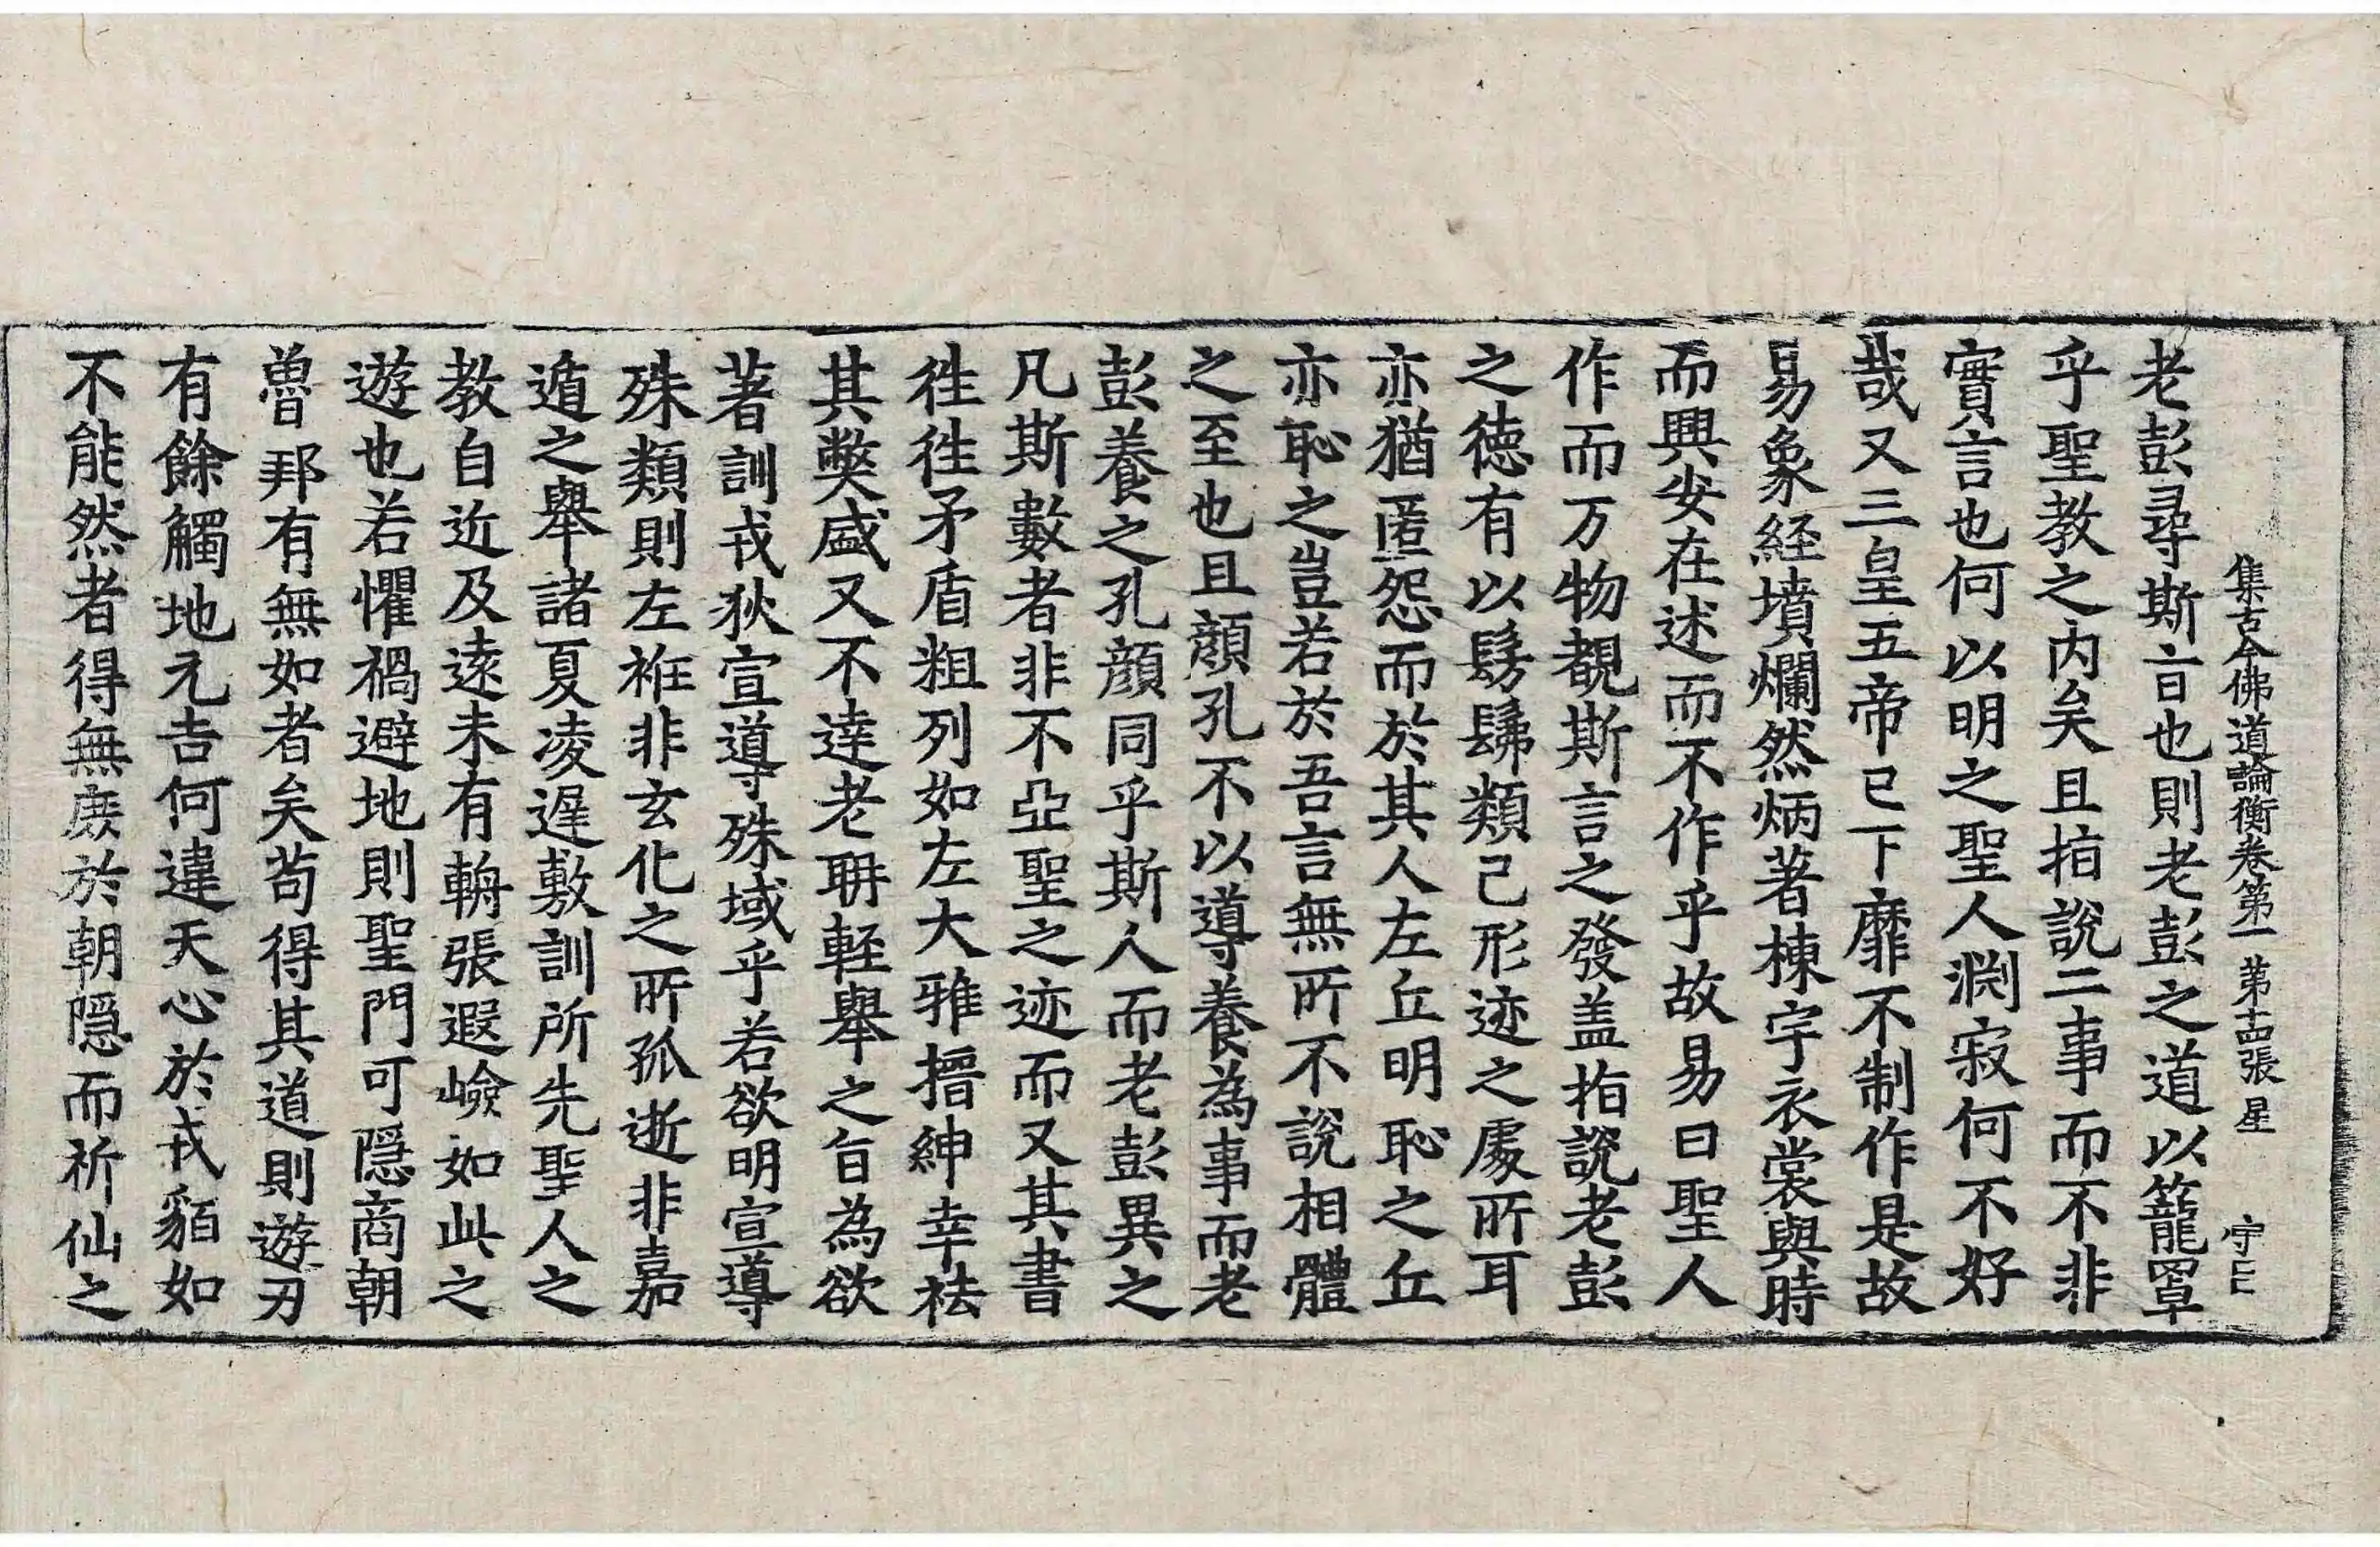 集古今佛道論衡卷第一 第十四張 星 守之
老彭尋斯言也則老彭之道以籠罩
乎聖教之内矣且指說二事而不非
實言也何以明之聖人淵寂何不好
哉又三皇五帝已下靡不制作是故
易象経墳爛然炳著棟宇衣裳與時
而興安在述而不作乎故易曰聖人
作而万物覩斯言之發盖指說老彭
之徳有以髣髴類己形迹之處所耳
亦猶匿怨而於其人左丘明恥之丘
亦恥之豈若於吾言無所不說相體
之至也且顔孔不以導養為事而老
彭養之孔顔同乎斯人而老彭異之
凡斯數者非不亞聖之迹而又其書
徃徃矛盾粗列如左大雅搢紳幸祛
其獘盛又不達老聃軽舉之旨為欲
著訓戎狄宣導殊域乎若欲明宣導
殊類則左衽非玄化之所孤逝非嘉
遁之舉諸夏凌遲敷訓所先聖人之
教自近及遠未有輈張遐嶮如此之
遊也若懼禍避地則聖門可隠商朝
魯邦有無如者矣苟得其道則遊刃
有餘觸地元吉何違天心於戎貊如
不能然者得無庶於朝隠而祈仙之